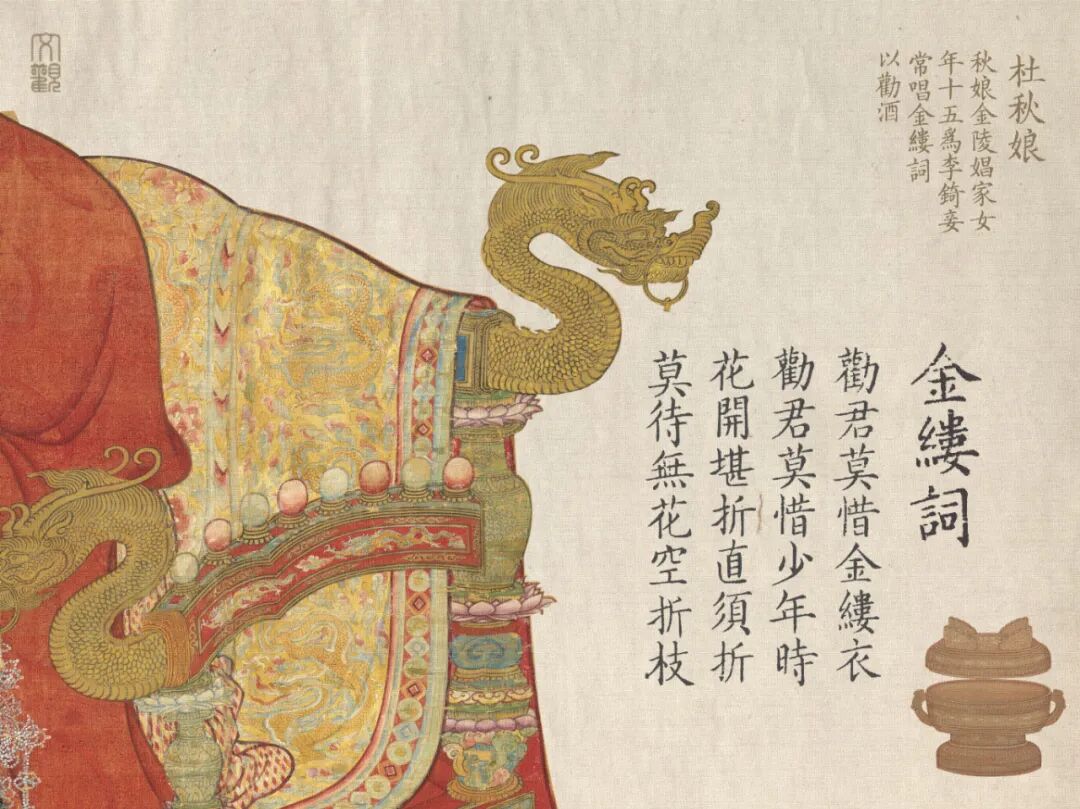 杜秋娘
秋娘金陵娼家女
年十五爲李錡妾
常唱金縷詞
以勸酒
金縷詞
勸君莫惜金縷衣
勸君莫惜少年時
花開堪折直須折
莫待無花空折枝
文觀